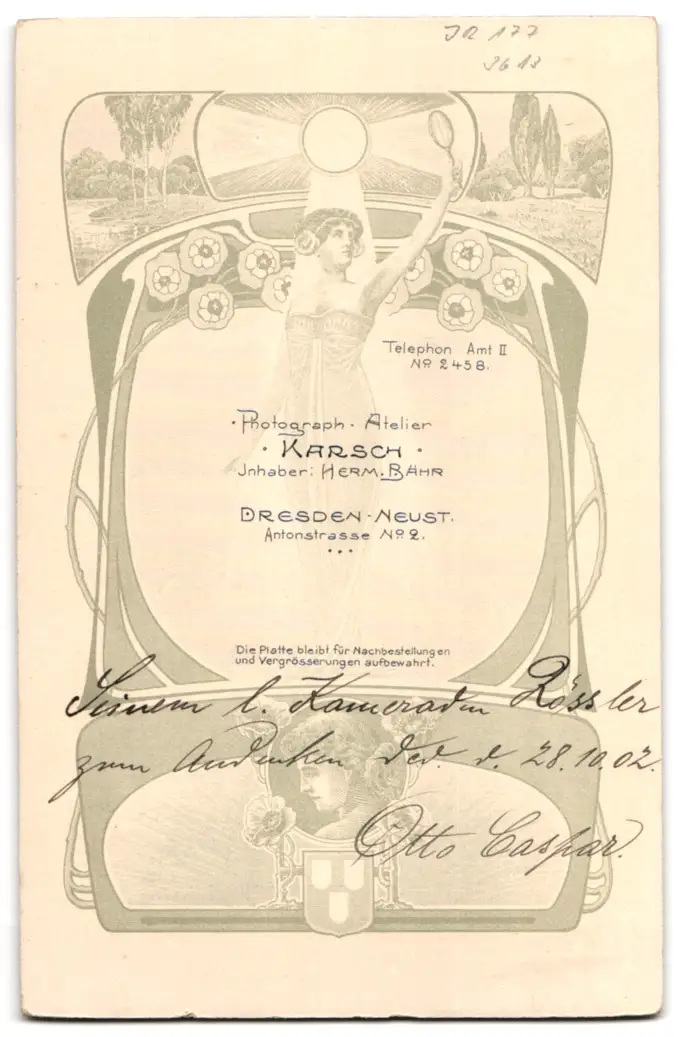 IR 177
Telephon Amt II
No 2458.
· Photograph · Atelier
· KARSCH ·
Jnhaber: HERM. BÄHR
DRESDEN-NEUST.
Antonstrasse No 2.
Die Platte bleibt für Nachbestellungen
und Vergrösserungen aufbewahrt.
Seinem l. Kameraden Rössler
zum Andenken ded. d. 28.10.02.
Otto Caspar.